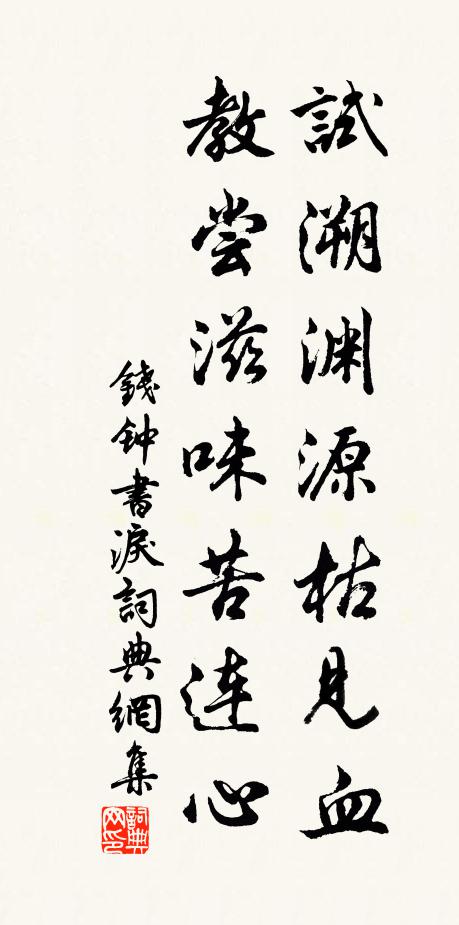 試溯渊源枯見血
教尝滋味苦連心
錢钟書淚詞典網集
詞典网印